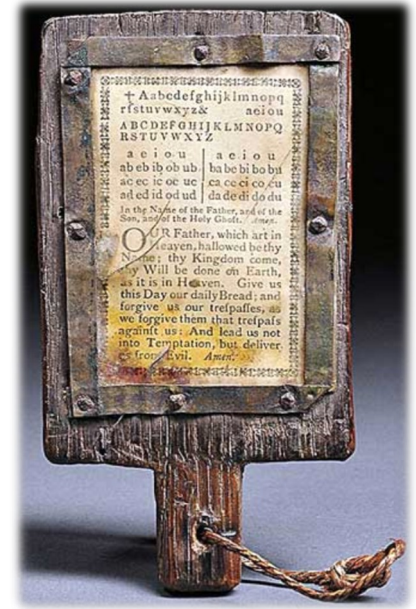 + Aabcdefghijklmnopq
rſstuvwxyz& aeiou
ABCDEFGHIJKLMNOPQ
RSTUVWXYZ
a e i o u | a e i o u
ab eb ib ob ub | ba be bi bo bu
ac ec ic oc uc | ca ce ci co cu
ad ed id od ud | da de di do du
In the Name of the Father, and of the
Son, and of the Holy Ghoſt. Amen.
OUR Father, which art in
Heaven, hallowed be thy
Name; thy Kingdom come,
thy Will be done on Earth,
as it is in Heaven. Give us
this Day our daily Bread; and
forgive us our treſpaſſes, as
we forgive them that treſpaſs
againſt us: And lead us not
into Temptation, but deliver
us from Evil. Amen.